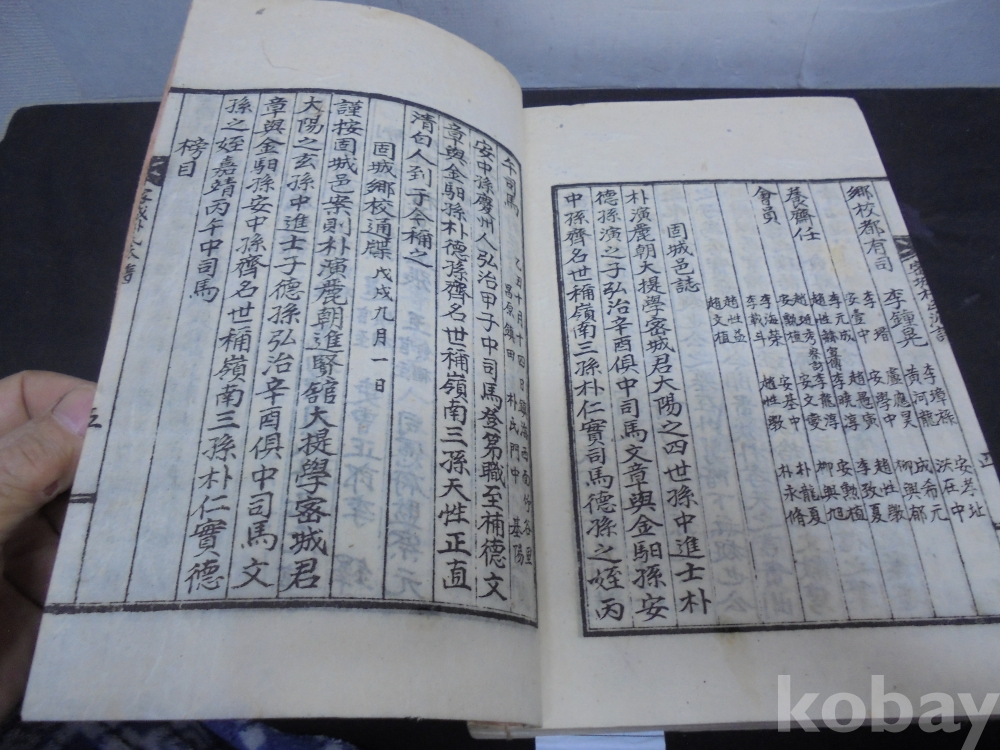 鄕校都有司
李鍾晃
李璋祿
黃河龍
盧應昊
安孝中
養齋任
李瑨
安壹中
安學中
成希元
柳興郁
安愚寅
趙性
李元成
安暎淳
李致夏
安勳植
安勳植
李龍淳
柳興旭
趙
安文
朴龍夏
會員
李海榮
安基中
朴永脩
李載斗
趙性
趙性益
趙文植
固城邑誌
朴演麗朝大提學密城君大陽之四世孫中進士朴
德孫演之子弘治辛酉俱中司馬文章與金馹孫安
中孫齊名世稱嶺南三孫朴仁實司馬德孫之姪丙
午司馬
乙丑十月十四日鎭海西面竹谷里
昌原鎭田 朴氏門中 基陽
安中孫慶州人弘治甲子中司馬登第職至補德文
章與金馹孫朴德孫齊名世稱嶺南三孫天性正直
淸白人到于今稱之
固城鄕校通牒 戊戌九月一日
謹按固城邑案則朴演麗朝進賢舘大提學密城君
大陽之玄孫中進士子德孫弘治辛酉俱中司馬文
章與金馹孫安中孫齊名世稱嶺南三孫朴仁實德
孫之姪嘉靖丙午中司馬
榜目
五
kobay